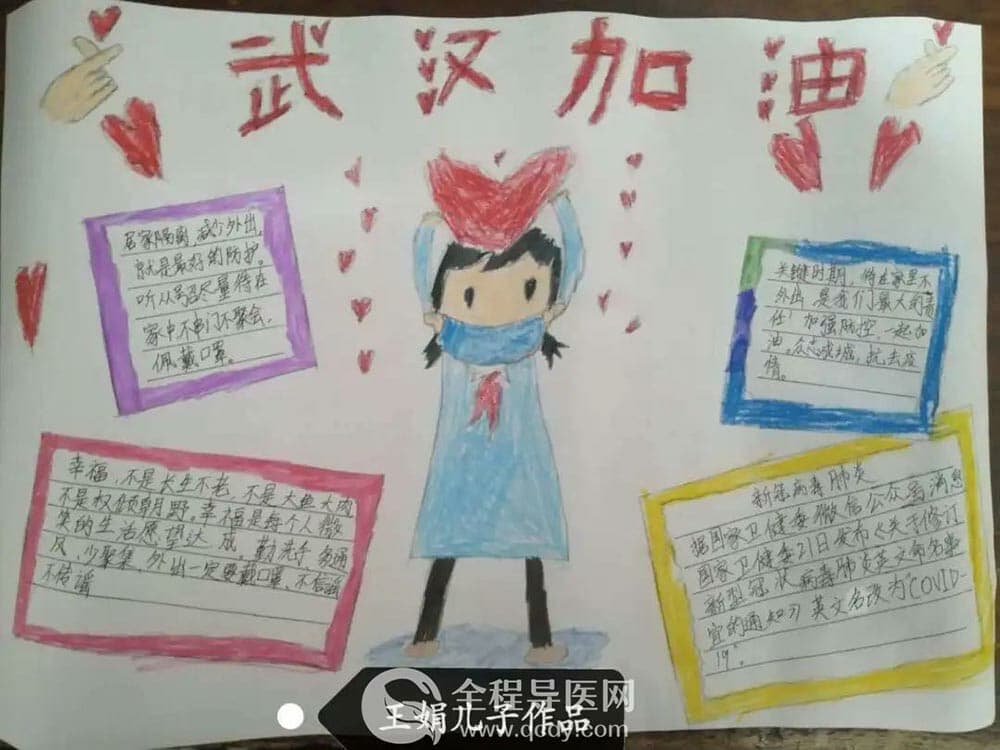 武汉加油
居家隔离,减少外出,
就是最好的防护。
听从号召尽量待在
家中不串门不聚会,
佩戴口罩。
关键时期,待在家里不
外出,是我们最大的责
任!加强防控,一起加
油,众志成城,抗击疫
情。
幸福,不是长生不老,不是大鱼大肉
不是权倾朝野。幸福是每个人微
笑的生活愿望达成,勤洗手,多通
风,少聚集,外出一定要戴口罩、不信谣
不传谣
新冠病毒肺炎
据国家卫健委微信公众号消息
国家卫健委21日发布《关于修订
新型冠状病毒肺炎英文命名事
宜的通知》英文名改为"COVID-
19"。
全程导医网
王娟儿子作品
www.qcdy.com